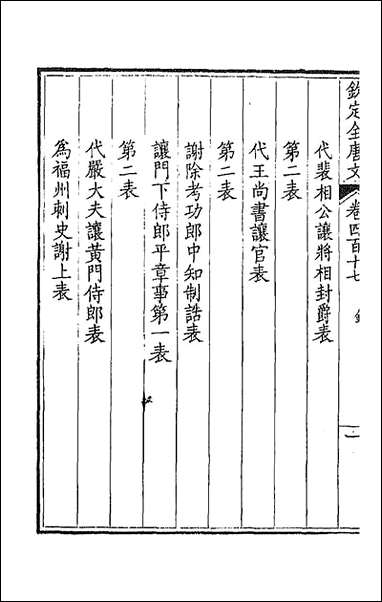 欽定全唐文 卷四百十七
二
代裴相公讓將相封爵表
第二表
代王尚書讓官表
第二表
謝除考功郎中知制誥表
讓門下侍郎平章事第一表
第二表
代嚴大夫讓黃門侍郎表
為福州刺史謝上表